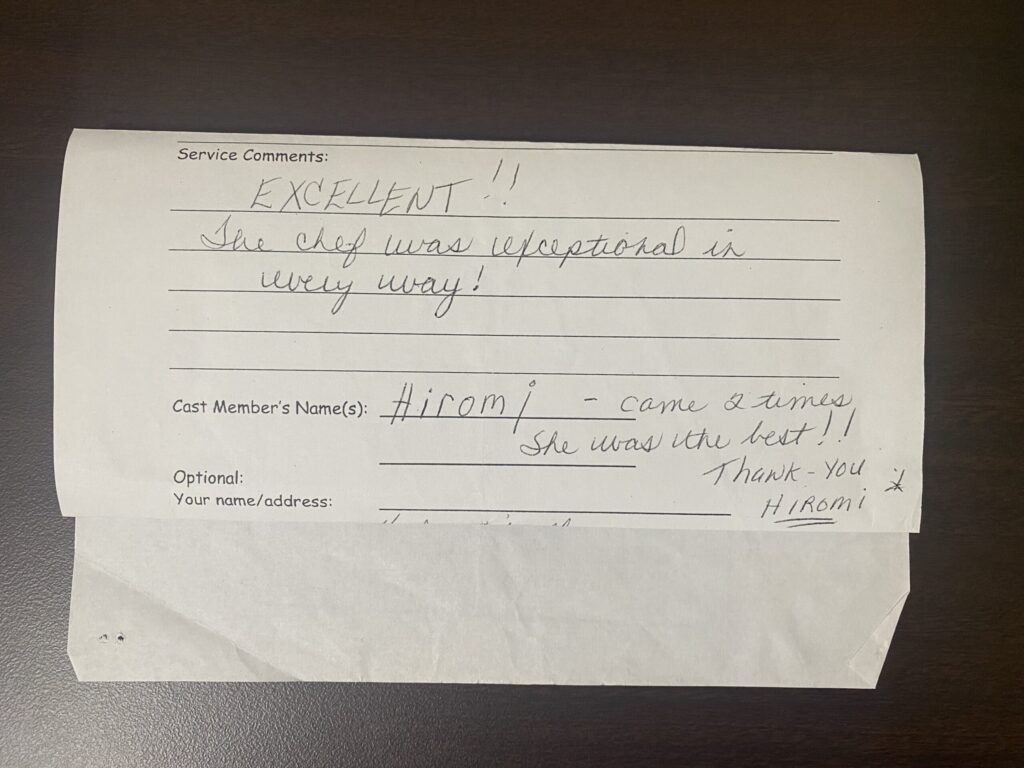 Service Comments:
EXCELLENT!!
The chef was exceptional in
every way!
Cast Member's Name(s): Hiromi - came 2 times
She was the best!!
Optional: Thank-you
Your name/address: HIROMi